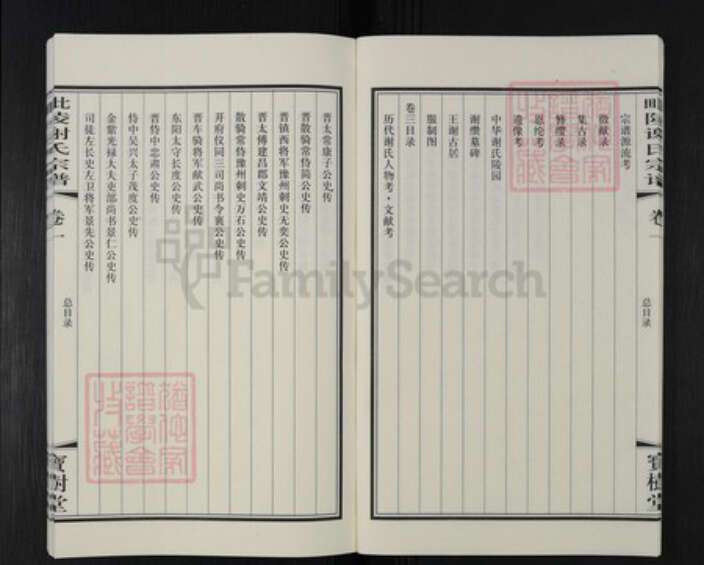 毗陵谢氏宗谱
卷一
总目录
寳樹堂
宗谱源流考
徵献录
集古录
簪缨录
恩纶考
遗像考
中华谢氏陵园
谢缵墓碑
王谢古居
服制图
卷三目录
历代谢氏人物考·文献考
晋太常康子公史传
晋散骑常侍简公史传
晋镇西将军豫州刺史无奕公史传
晋太傅建昌郡文靖公史传
散骑常侍豫州刺史万石公史传
开府仪同三司尚书令襄公史传
晋车骑将军献武公史传
东阳太守长度公史传
晋侍中忠肃公史传
侍中吴兴太子茂度公史传
金紫光禄大夫吏部尚书景仁公史传
司徒左长史左卫将军景先公史传
毗陵谢氏宗谱
卷一
总目录
寳樹堂
FamilySearch